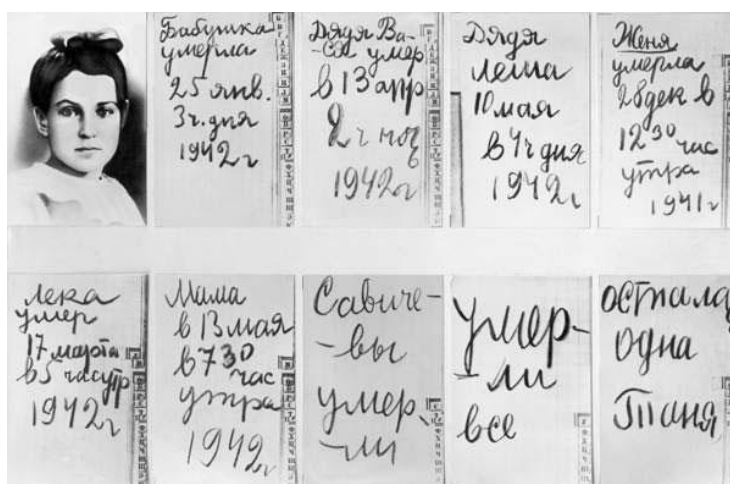 Бабушка
умерла
25 янв.
3 ч. дня
1942 г
Дядя Ва-
-ся умер
в 13 апр
2 ч ноч
ь
1942 г
Дядя
Леша
10 мая
в 4 ч дня
1942 г
Женя
умерла
28 дек в
12 30 час
утра
1941 г
Лека
умер
17 марта
в 5 час утр
1942 г
Мама
в 13 мая
в 7 30
час
утра
1942 г
Савиче-
-вы
умер-
-ли
умер-
-ли
все
остала
одна
Таня